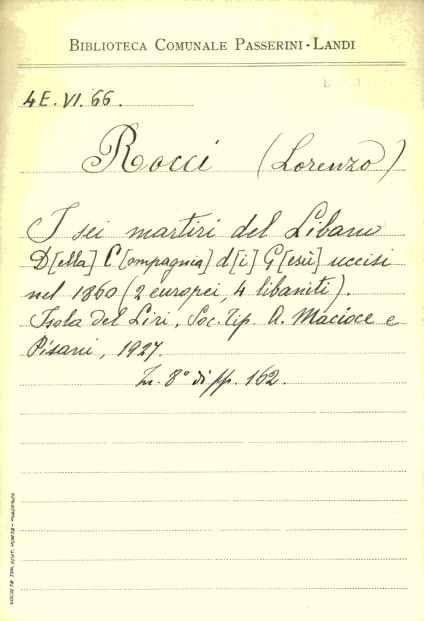 BIBLIOTECA COMUNALE PASSERINI-LANDI
4E. VI. 66.
Rocci (Lorenzo)
I sei martiri del Libano
D[ella] C[ompagnia] d[i] G[esù] uccisi
nel 1860 (2 europei, 4 libaniti).
Isola del Liri, Soc. Tip. A. Macioce e
Pisani, 1927.
In. 8° di pp. 162.